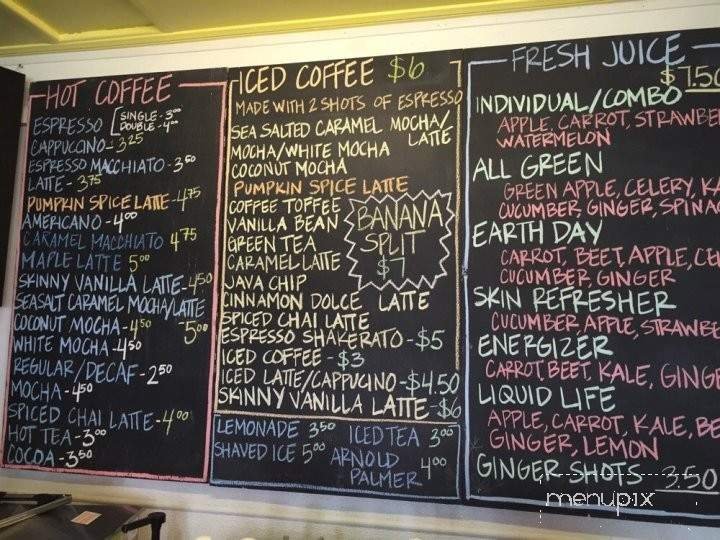 HOT COFFEE
ESPRESSO SINGLE - 3.00
DOUBLE - 4.00
CAPPUCCINO - 3.25
ESPRESSO MACCHIATO - 3.50
LATTE - 3.75
PUMPKIN SPICE LATTE - 4.75
AMERICANO - 4.00
CARAMEL MACCHIATO 4.75
MAPLE LATTE 5.00
SKINNY VANILLA LATTE - 4.50
SEASALT CARAMEL MOCHA/LATTE 5.00
COCONUT MOCHA - 4.50
WHITE MOCHA - 4.50
REGULAR/DECAF - 2.50
MOCHA - 4.50
SPICED CHAI LATTE - 4.00
HOT TEA - 3.00
COCOA - 3.50
ICED COFFEE $6
MADE WITH 2 SHOTS OF ESPRESSO
SEA SALTED CARAMEL MOCHA/
LATTE
MOCHA/WHITE MOCHA
COCONUT MOCHA
PUMPKIN SPICE LATTE
COFFEE TOFFEE
VANILLA BEAN
GREEN TEA
CARAMEL LATTE
JAVA CHIP
CINNAMON DOLCE LATTE
SPICED CHAI LATTE
ESPRESSO SHAKERATO - $5
ICED COFFEE - $3
ICED LATTE/CAPPUCINO - $4.50
SKINNY VANILLA LATTE - $6
BANANA
SPLIT
$7
LEMONADE 3.50
SHAVED ICE 5.00
ICED TEA 3.00
ARNOLD
PALMER 4.00
FRESH JUICE
$7.50
INDIVIDUAL/COMBO
APPLE, CARROT, STRAWBE
WATERMELON
ALL GREEN
GREEN APPLE, CELERY, KA
CUCUMBER, GINGER, SPINAC
EARTH DAY
CARROT, BEET, APPLE, CEL
CUCUMBER GINGER
SKIN REFRESHER
CUCUMBER, APPLE, STRAWBE
ENERGIZER
CARROT, BEET, KALE, GINGE
LIQUID LIFE
APPLE, CARROT, KALE, BE
GINGER, LEMON
GINGER SHOTS 3.50
menupix